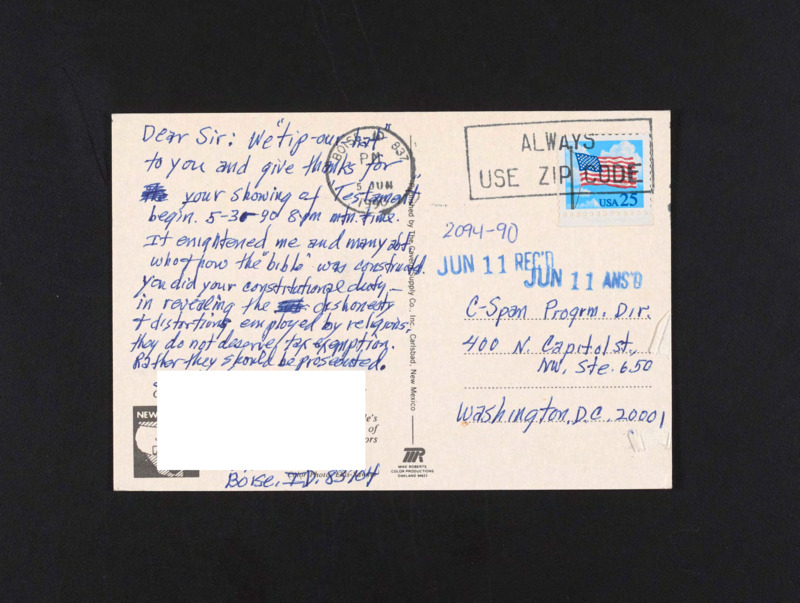 Dear Sir: We "tip-our hat"
to you and give thanks for
your showing of Testament,
begin. 5-30-90 8pm mtn. time.
It enightened me and many abt
who & how the "bible" was construcd.
you did your constitutional duty —
in revealing the dishonesty
& distortions employed by religions.
they do not deserve tax exemption.
Rather they should be prosecuted.
NEW
le's
of
ors
Color Photo
Boise, I.D. 83704
BOISE, ID 837
PM
5 JUN
1990
Published by The Cavern Supply Co., Inc., Carlsbad, New Mexico
MR
MIKE ROBERTS
COLOR PRODUCTIONS
OAKLAND 94623
ALWAYS
USE ZIP CODE
USA 25
2094-90
JUN 11 REC'D
JUN 11 ANS'D
C-Span Progrm. Dir.
400 N. Capitol st.,
NW, Ste. 650
Washington, D.C. 20001